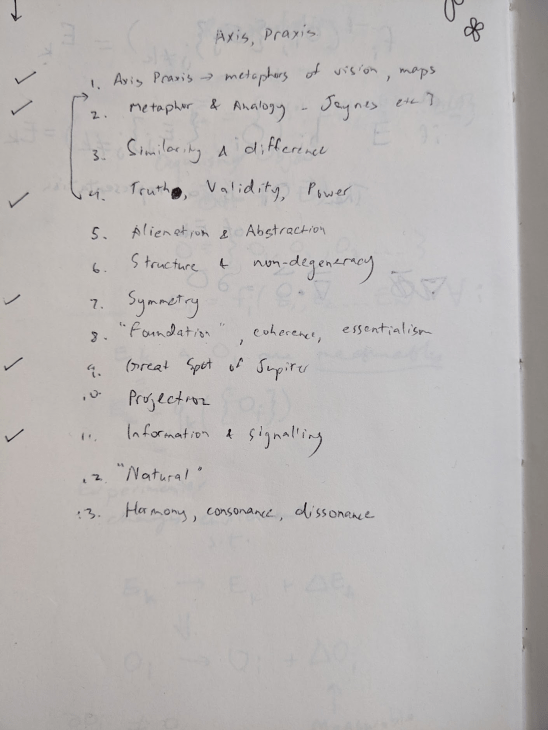 Axis, Praxis
1. Axis Praxis → metaphors of vision, maps
2. Metaphor & Analogy - Jaynes etc?
3. Similarity & difference
4. Truth, Validity, Power
5. Alienation & Abstraction
6. Structure & non-degeneracy
7. Symmetry
8. "Foundation", coherence, essentialism
9. Great Spot of Jupiter
10. Projection
11. Information & signalling
12. "Natural"
13. Harmony, consonance, dissonance